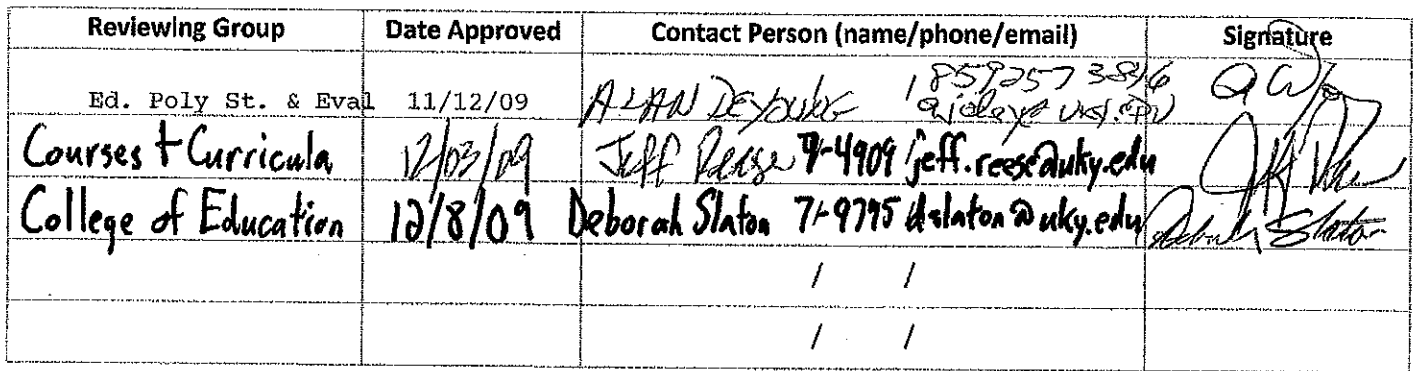 Reviewing Group Date Approved Contact Person (name/phone/email) Signature
Ed. Poly St. & Eval 11/12/09 ALAN DEYOUNG / 8592573846
Courses + Curricula 12/03/09 Jeff Reese 7-4909 jeff.reese@uky.edu
College of Education 12/8/09 Deborah Slaton 7-9795 dslaton@uky.edu Deborah Slaton
/ /
/ /